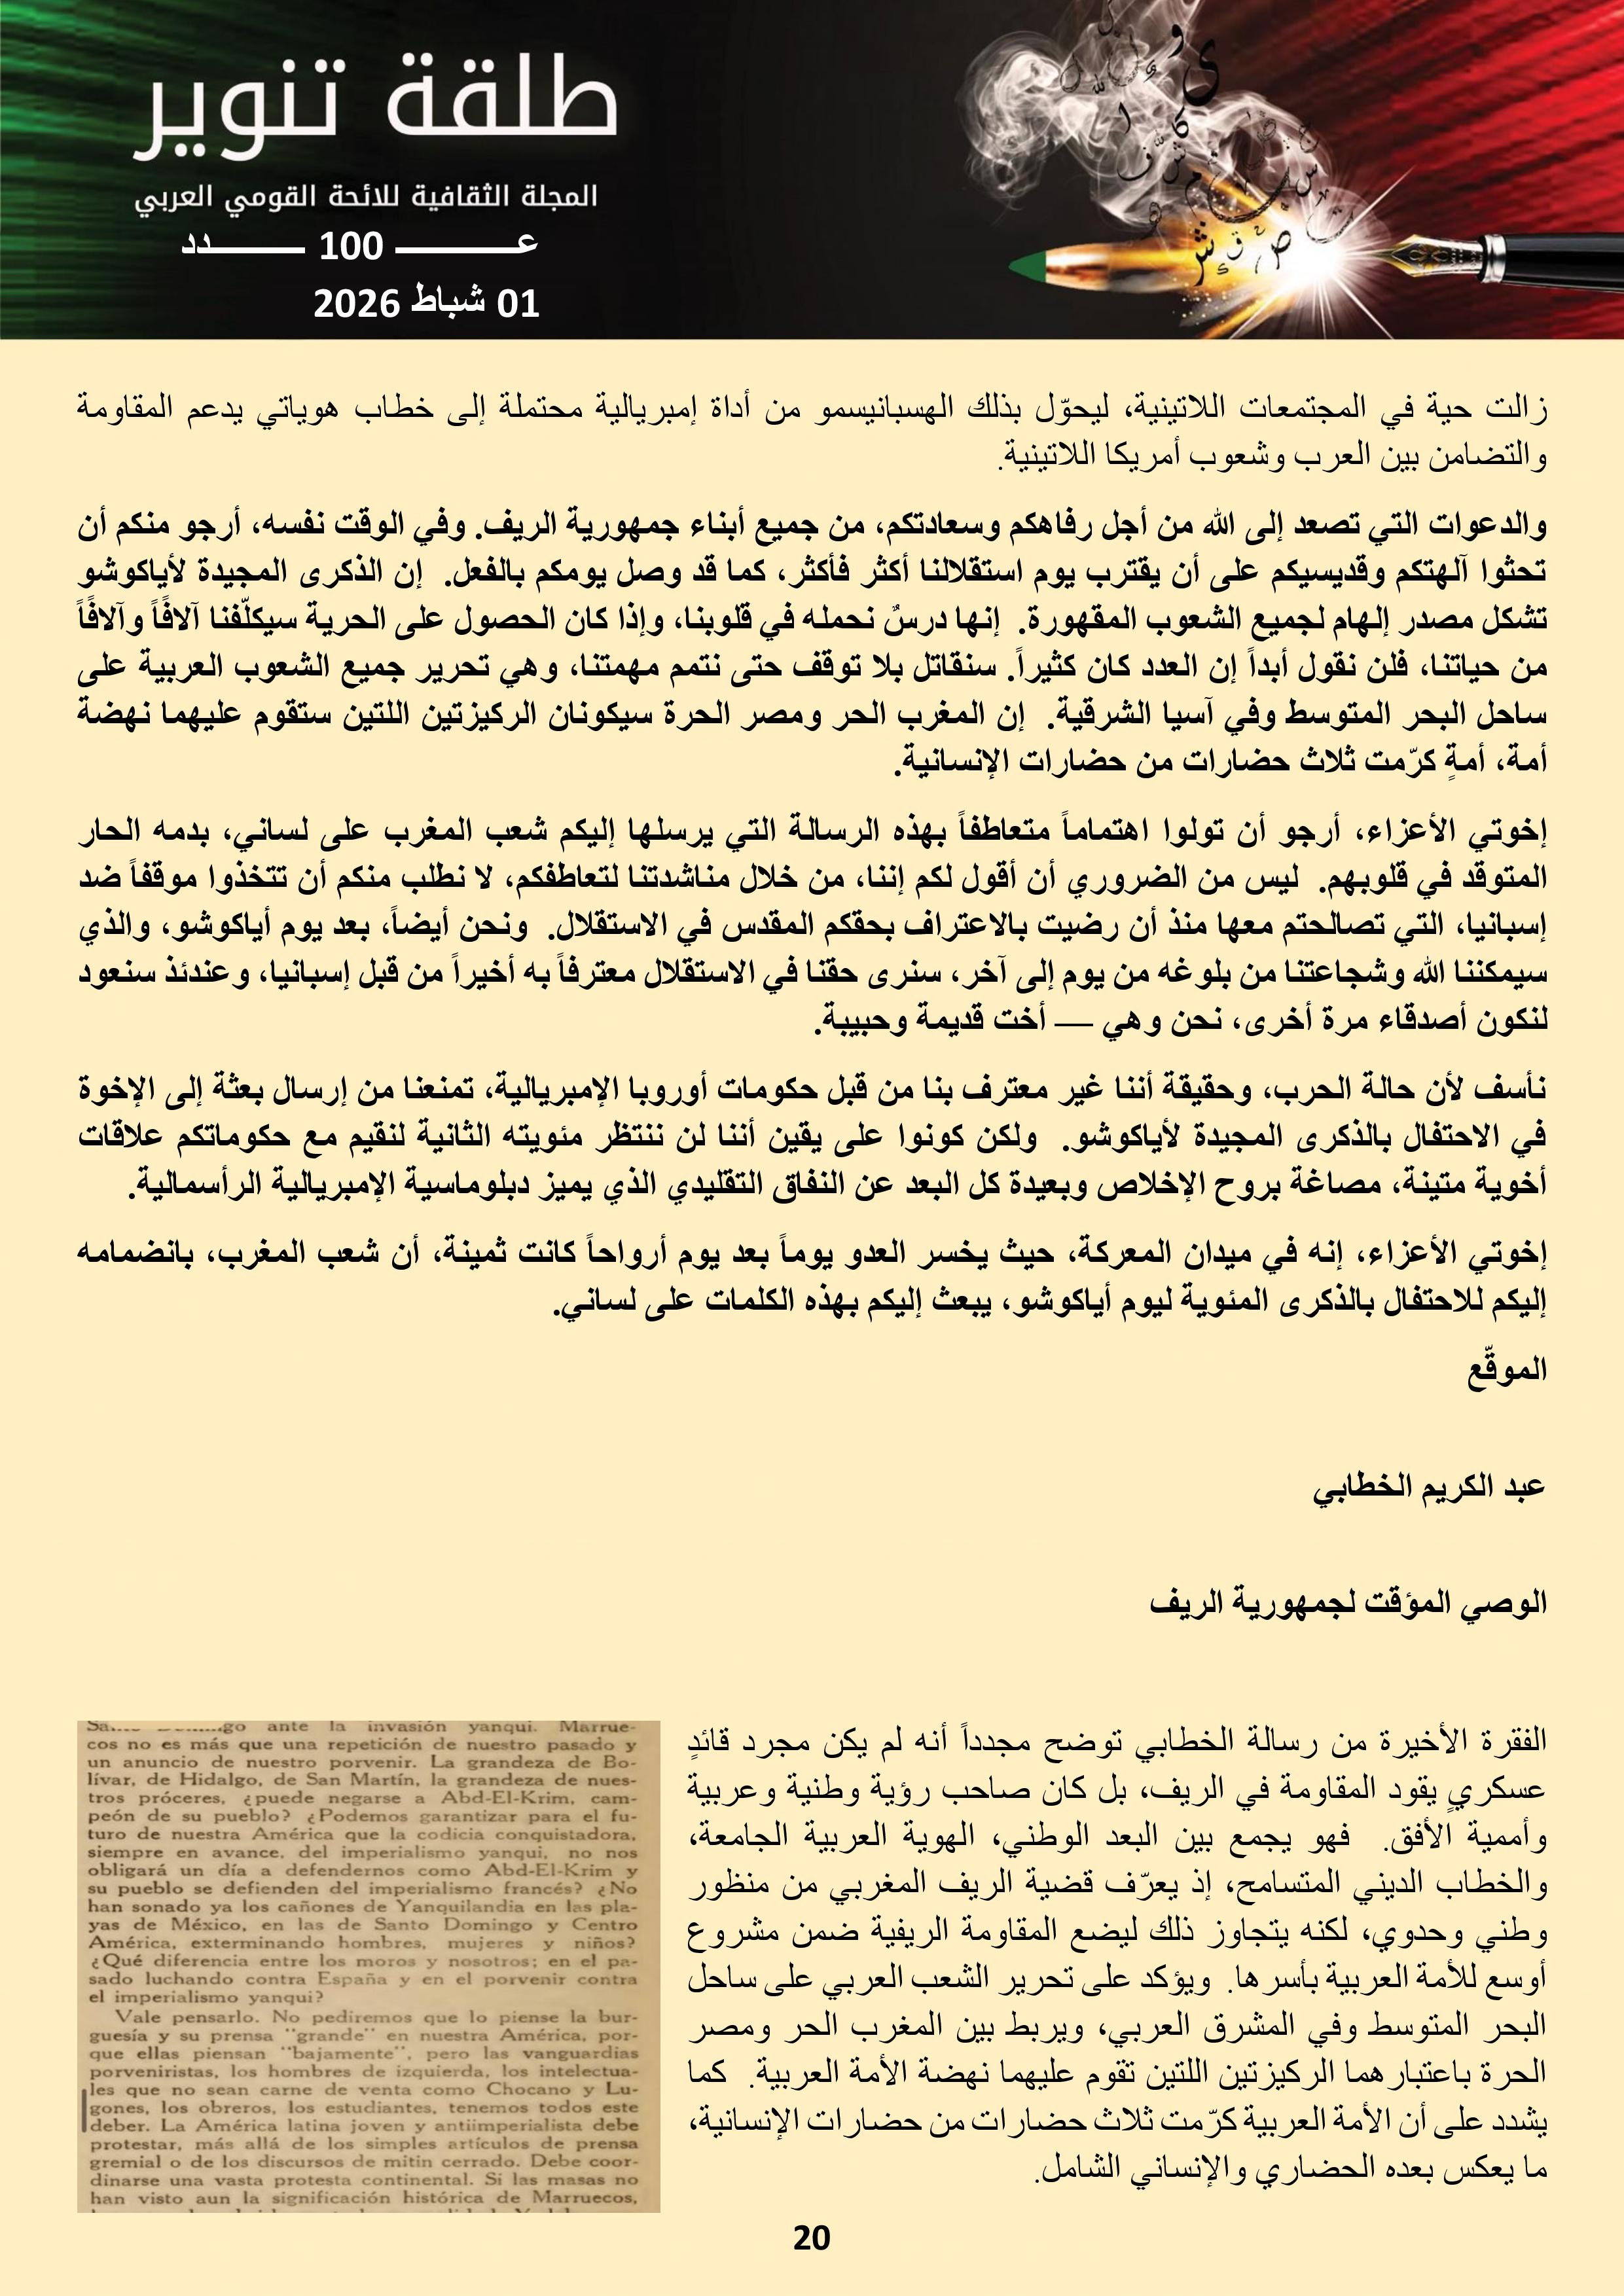 طلقة تنوير
المجلة الثقافية للائحة القومي العربي
عــــــــ 100 ــــــــدد
01 شباط 2026
زالت حية في المجتمعات اللاتينية، ليحوّل بذلك الهسبانيسمو من أداة إمبريالية محتملة إلى خطاب هوياتي يدعم المقاومة
والتضامن بين العرب وشعوب أمريكا اللاتينية.
والدعوات التي تصعد إلى الله من أجل رفاهكم وسعادتكم، من جميع أبناء جمهورية الريف. وفي الوقت نفسه، أرجو منكم أن
تحثوا آلهتكم وقديسيكم على أن يقترب يوم استقلالنا أكثر فأكثر، كما قد وصل يومكم بالفعل. إن الذكرى المجيدة لأياكوشو
تشكل مصدر إلهام لجميع الشعوب المقهورة. إنها درسٌ نحمله في قلوبنا، وإذا كان الحصول على الحرية سيكلّفنا آلافًاً وآلافًاً
من حياتنا، فلن نقول أبداً إن العدد كان كثيراً. سنقاتل بلا توقف حتى نتمم مهمتنا، وهي تحرير جميع الشعوب العربية على
ساحل البحر المتوسط وفي آسيا الشرقية. إن المغرب الحر ومصر الحرة سيكونان الركيزتين اللتين ستقوم عليهما نهضة
أمة، أمةٍ كرّمت ثلاث حضارات من حضارات الإنسانية.
إخوتي الأعزاء، أرجو أن تولوا اهتماماً متعاطفاً بهذه الرسالة التي يرسلها إليكم شعب المغرب على لساني، بدمه الحار
المتوقد في قلوبهم. ليس من الضروري أن أقول لكم إننا، من خلال مناشدتنا لتعاطفكم، لا نطلب منكم أن تتخذوا موقفاً ضد
إسبانيا، التي تصالحتم معها منذ أن رضيت بالاعتراف بحقكم المقدس في الاستقلال. ونحن أيضاً، بعد يوم أياكوشو، والذي
سيمكننا الله وشجاعتنا من بلوغه من يوم إلى آخر، سنرى حقنا في الاستقلال معترفاً به أخيراً من قبل إسبانيا، وعندئذ سنعود
لنكون أصدقاء مرة أخرى، نحن وهي — أخت قديمة وحبيبة.
نأسف لأن حالة الحرب، وحقيقة أننا غير معترف بنا من قبل حكومات أوروبا الإمبريالية، تمنعنا من إرسال بعثة إلى الإخوة
في الاحتفال بالذكرى المجيدة لأياكوشو. ولكن كونوا على يقين أننا لن ننتظر مئويته الثانية لنقيم مع حكوماتكم علاقات
أخوية متينة، مصاغة بروح الإخلاص وبعيدة كل البعد عن النفاق التقليدي الذي يميز دبلوماسية الإمبريالية الرأسمالية.
إخوتي الأعزاء، إنه في ميدان المعركة، حيث يخسر العدو يوماً بعد يوم أرواحاً كانت ثمينة، أن شعب المغرب، بانضمامه
إليكم للاحتفال بالذكرى المئوية ليوم أياكوشو، يبعث إليكم بهذه الكلمات على لساني.
الموقّع
عبد الكريم الخطابي
الوصي المؤقت لجمهورية الريف
الفقرة الأخيرة من رسالة الخطابي توضح مجدداً أنه لم يكن مجرد قائدٍ
عسكريٍ يقود المقاومة في الريف، بل كان صاحب رؤية وطنية وعربية
وأممية الأفق. فهو يجمع بين البعد الوطني، الهوية العربية الجامعة،
والخطاب الديني المتسامح، إذ يعرّف قضية الريف المغربي من منظور
وطني وحدوي، لكنه يتجاوز ذلك ليضع المقاومة الريفية ضمن مشروع
أوسع للأمة العربية بأسرها. ويؤكد على تحرير الشعب العربي على ساحل
البحر المتوسط وفي المشرق العربي، ويربط بين المغرب الحر ومصر
الحرة باعتبارهما الركيزتين اللتين تقوم عليهما نهضة الأمة العربية. كما
يشدد على أن الأمة العربية كرّمت ثلاث حضارات من حضارات الإنسانية،
ما يعكس بعده الحضاري والإنساني الشامل.
ante la invasión yanqui. Marrue-
cos no es más que una repetición de nuestro pasado y
un anuncio de nuestro porvenir. La grandeza de Bo-
lívar, de Hidalgo, de San Martín, la grandeza de nues-
tros próceres, ¿puede negarse a Abd-El-Krim, cam-
peón de su pueblo? ¿Podemos garantizar para el fu-
turo de nuestra América que la codicia conquistadora,
siempre en avance, del imperialismo yanqui, no nos
obligará un día a defendernos como Abd-El-Krim y
su pueblo se defienden del imperialismo francés? ¿No
han sonado ya los cañones de Yanquilandia en las pla-
yas de México, en las de Santo Domingo y Centro
América, exterminando hombres, mujeres y niños?
¿Qué diferencia entre los moros y nosotros; en el pa-
sado luchando contra España y en el porvenir contra
el imperialismo yanqui?
Vale pensarlo. No pediremos que lo piense la bur-
guesía y su prensa "grande" en nuestra América, por-
que ellas piensan "bajamente", pero las vanguardias
porveniristas, los hombres de izquierda, los intelectua-
les que no sean carne de venta como Chocano y Lu-
gones, los obreros, los estudiantes, tenemos todos este
deber. La América latina joven y antiimperialista debe
protestar, más allá de los simples artículos de prensa
gremial o de los discursos de mitin cerrado. Debe coor-
dinarse una vasta protesta continental. Si las masas no
han visto aun la significación histórica de Marruecos,
20